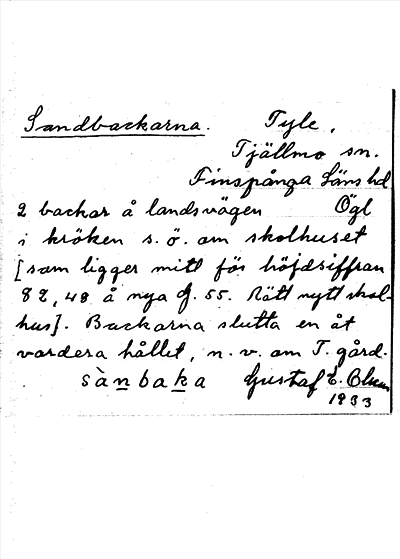 Sandbackarna. Tyle,
Tjällmo sn.
Finspånga Läns hd
2 backar å landsvägen Ögl
i kröken s.ö. om skolhuset
[som ligger mitt för höjdsiffran
82,48 å nya g. 55. Rätt nytt skol-
hus]. Backarna slutta en åt
vardera hållet, n.v. om T. gård.
sànbaka Gustaf E.
1933